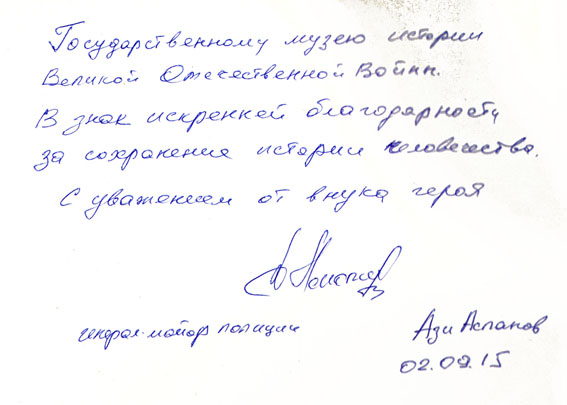 Государственному музею истории
Великой Отечественной Войны.
В знак искренней благодарности
за сохранение истории человечества.
С уважением от внука героя
генерал-майор полиции
Ази Асланов
02.09.15